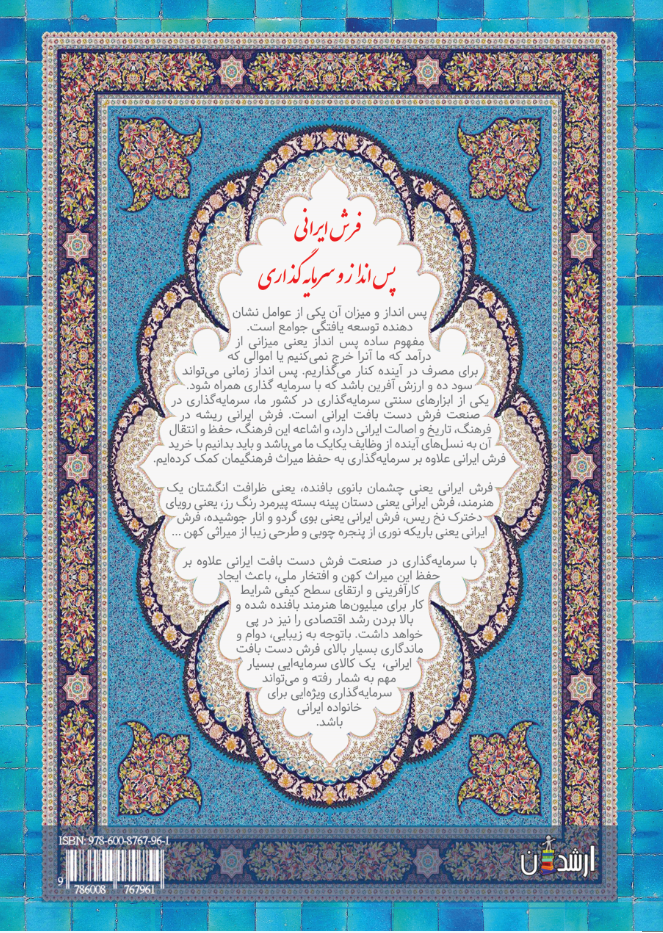 فرش ایرانی
پس انداز و سرمایه گذاری
پس انداز و میزان آن یکی از عوامل نشان
دهنده توسعه یافتگی جوامع است.
مفهوم ساده پس انداز یعنی میزانی از
درآمد که ما آنرا خرج نمی‌کنیم یا اموالی که
برای مصرف در آینده کنار می‌گذاریم. پس انداز زمانی می‌تواند
سود ده و ارزش آفرین باشد که با سرمایه گذاری همراه شود.
یکی از ابزارهای سنتی سرمایه‌گذاری در کشور ما، سرمایه‌گذاری در
صنعت فرش دست بافت ایرانی است. فرش ایرانی ریشه در
فرهنگ، تاریخ و اصالت ایرانی دارد، و اشاعه این فرهنگ، حفظ و انتقال
آن به نسل‌های آینده از وظایف یکایک ما می‌باشد و باید بدانیم با خرید
فرش ایرانی علاوه بر سرمایه‌گذاری به حفظ میراث فرهنگیمان کمک کرده‌ایم.
فرش ایرانی یعنی چشمان بانوی بافنده، یعنی ظرافت انگشتان یک
هنرمند، فرش ایرانی یعنی دستان پینه بسته پیرمرد رنگ رز، یعنی رویای
دخترک نخ ریس، فرش ایرانی یعنی بوی گردو و انار جوشیده، فرش
ایرانی یعنی باریکه نوری از پنجره چوبی و طرحی زیبا از میراثی کهن ...
با سرمایه‌گذاری در صنعت فرش دست بافت ایرانی علاوه بر
حفظ این میراث کهن و افتخار ملی، باعث ایجاد
کارآفرینی و ارتقای سطح کیفی شرایط
کار برای میلیون‌ها هنرمند بافنده شده و
بالا بردن رشد اقتصادی را نیز در پی
خواهد داشت. باتوجه به زیبایی، دوام و
ماندگاری بسیار بالای فرش دست بافت
ایرانی، یک کالای سرمایه‌ایی بسیار
مهم به شمار رفته و می‌تواند
سرمایه‌گذاری ویژه‌ایی برای
خانواده ایرانی
باشد.
ISBN: 978-600-8767-96-1
9 786008 767961
ارشدان